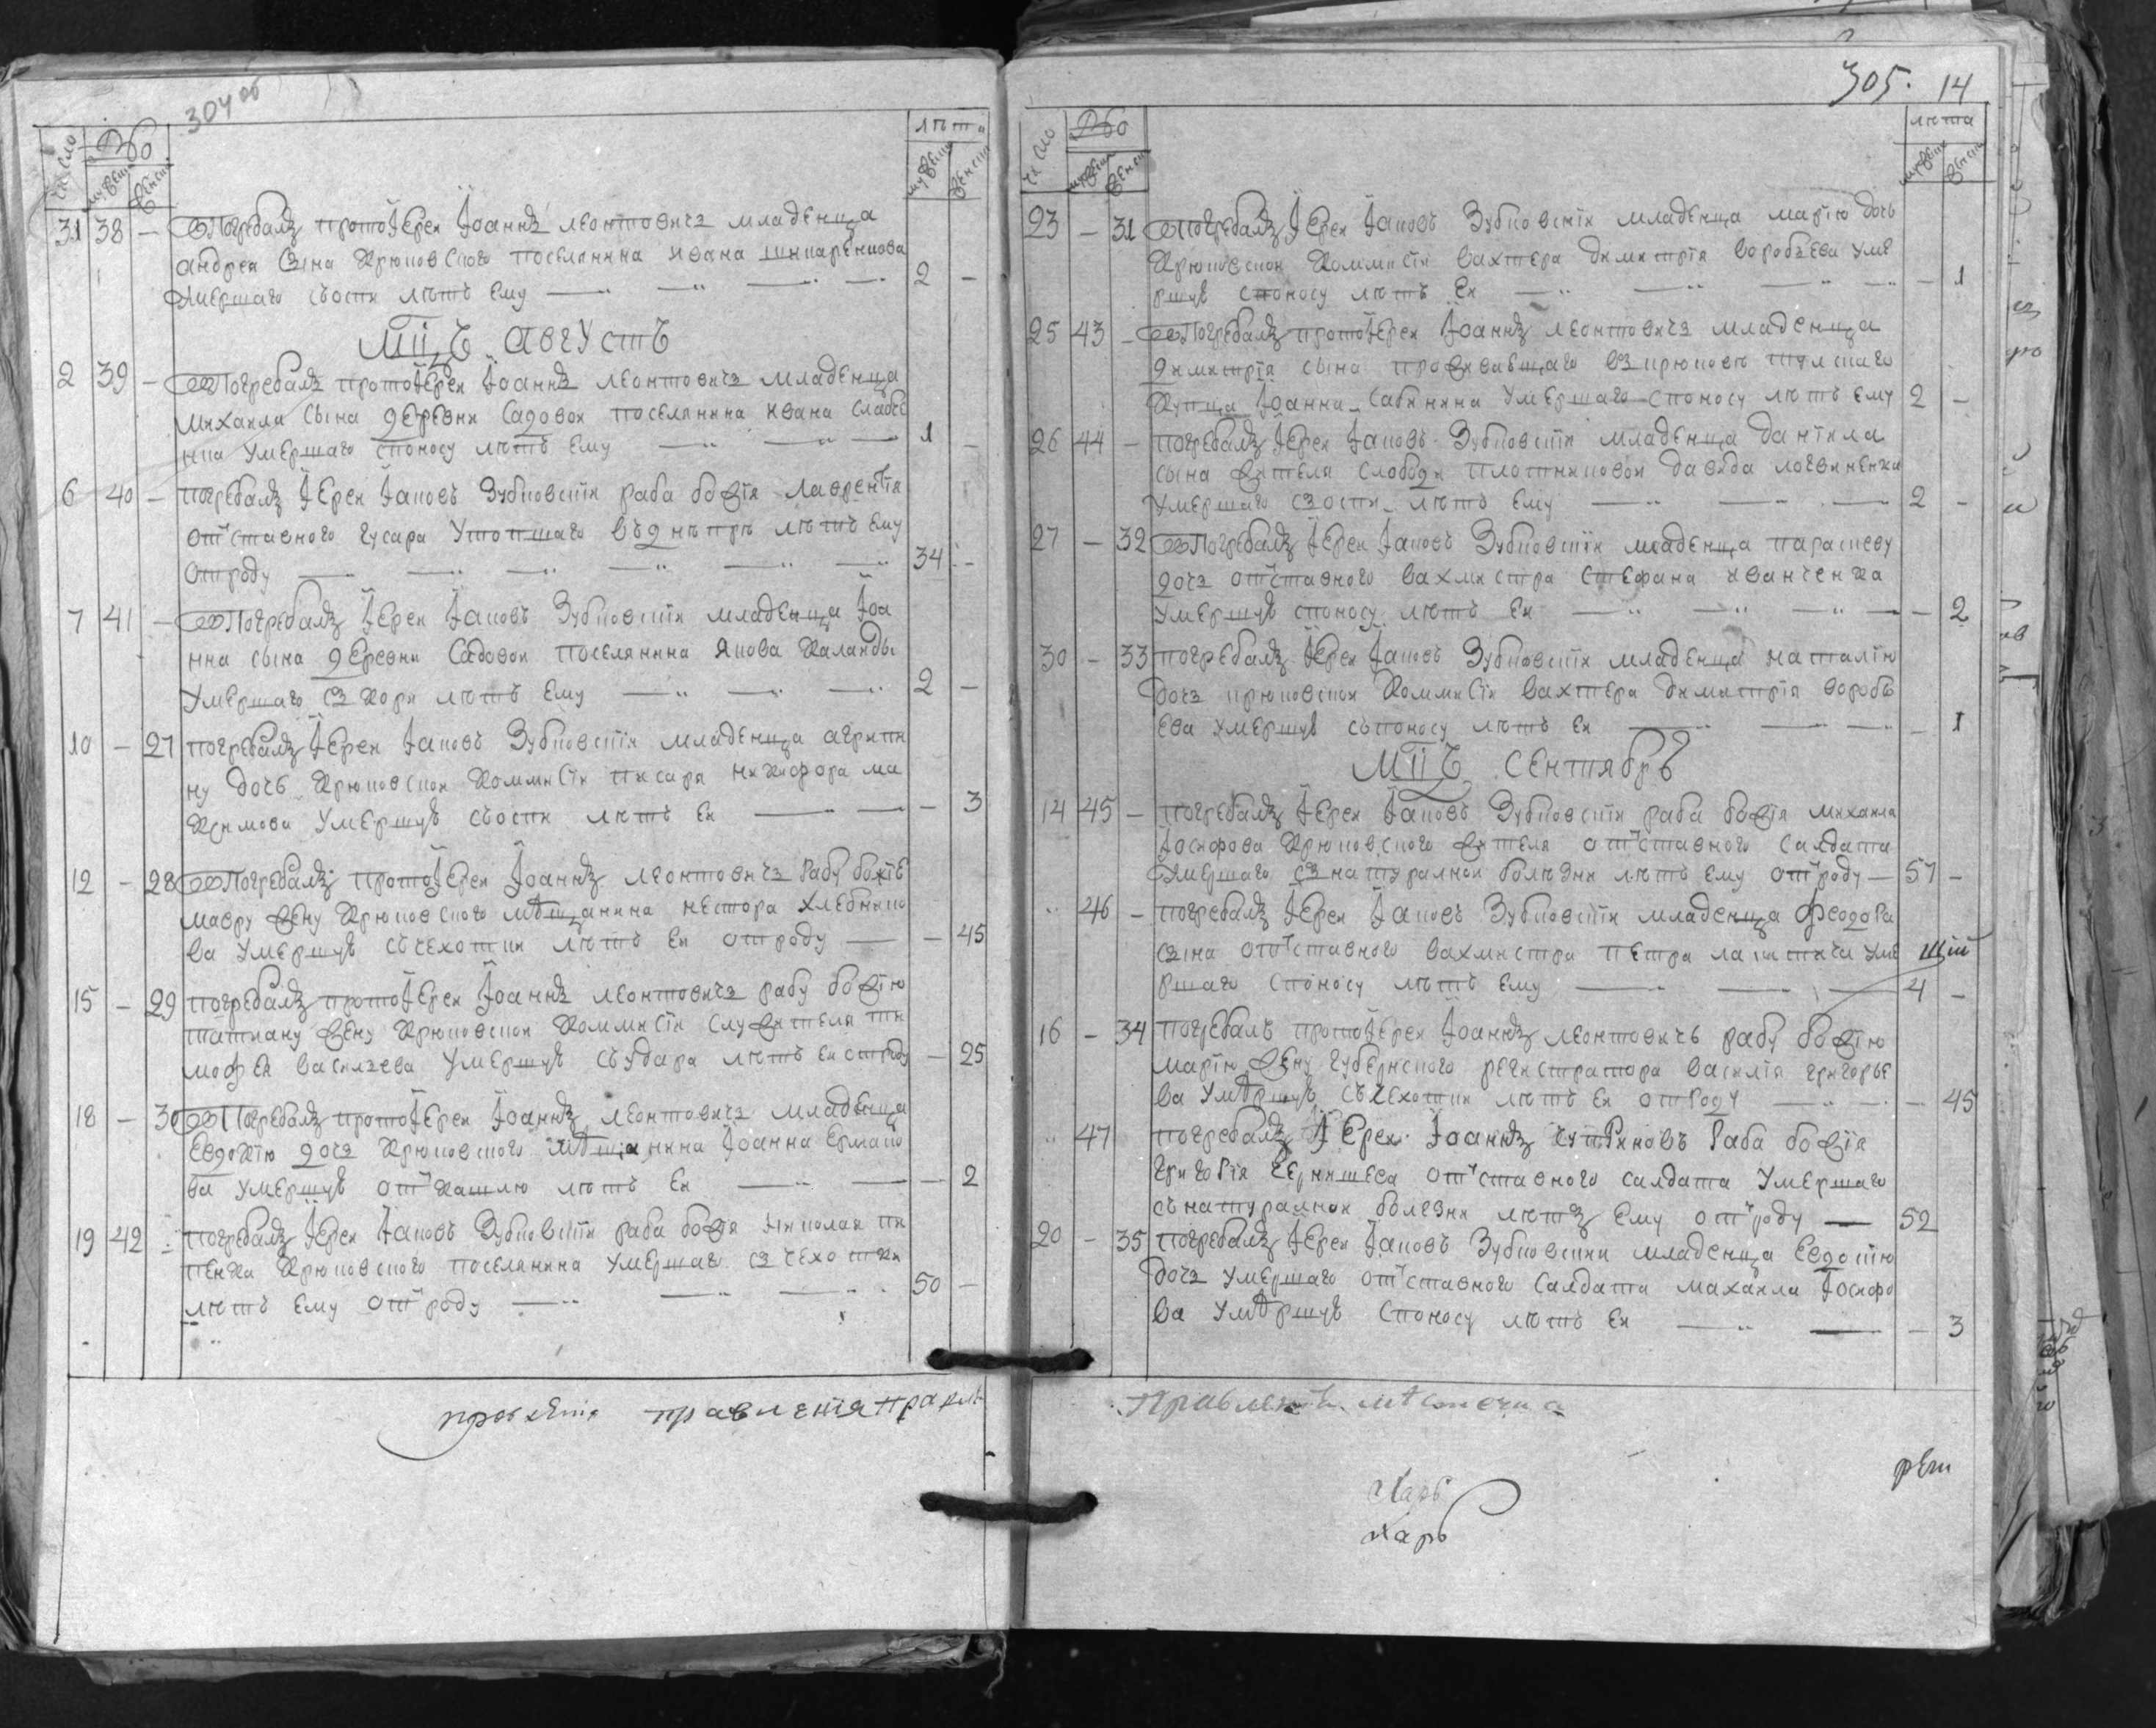 304 об
число
мужеска
женска
лѣта
мужеска
женска
31 38 - Погребалъ протоїерей Їоаннъ леонтовичъ младенца
андрея сына крюковского поселянина ивана
Умершаго съоспи лѣтъ Ему 2 -
Мцъ августъ
2 39 - Погребалъ протоїерей Їоаннъ леонтовичъ младенца
михаила сына деревни Садовой поселянина ивана
Умершаго споносу лѣтъ Ему 1 -
6 40 - погребалъ їерей їаковъ Зубковскїй раба божїя лаврентїя
отставного гусара Утопшаго въднѣпрѣ лѣтъ Ему
отроду 34 -
7 41 - Погребалъ їерей їаковъ Зубковскїй младенца їоа
нна сына деревни Садовой поселянина Якова Каланды
Умершаго съ кори лѣтъ Ему 2 -
10 - 27 погребалъ їерей їаковъ Зубковскїй младенца агрипи
ну дочь крюковской коммисїи писаря никифора ма
ксимова Умершую съоспи лѣтъ Ей - 3
12 - 28 Погребалъ протоїерей Їоаннъ леонтовичъ Рабу божїю
мавру жену крюковского мѣщанина нестора хлебнико
ва Умершую съчехотки лѣтъ Ей отроду - 45
15 - 29 погребалъ протоїерей Їоаннъ леонтовичъ рабу божїю
татиану жену крюковской коммисїи служителя ти
мофея васильева Умершую съудара лѣтъ Ей отроду - 25
18 - 30 Погребалъ протоїерей Їоаннъ леонтовичъ младенца
Евдокїю дочъ крюковского мѣщанина Їоанна Ермако
ва Умершую от кашлю лѣтъ Ей - 2
19 42 - погребалъ їерей їаковъ Зубковскїй раба божїя николая пи
пенка крюковского поселянина Умершаго съ чехотки
лѣтъ Ему от роду 50 -
правленїя
305. 14
число
мужеска
женска
лѣта
мужеска
женска
23 - 31 Погребалъ їерей їаковъ Зубковскїй младенца марїю дочь
крюковской коммисїи вахтера димитрїя воробьева Уме
ршую споносу лѣтъ Ей - 1
25 43 - Погребалъ протоїерей Їоаннъ леонтовичъ младенца
димитрїя сына проживавщаго въ крюковѣ тулскаго
купца Їоанна Савинина Умершаго споносу лѣтъ Ему 2 -
26 44 - погребалъ їерей їаковъ Зубковскїй младенца данїила
сына жителя слободи плотниковой давида логвиненка
Умершаго съоспи лѣтъ Ему 2 -
27 - 32 Погребалъ їерей їаковъ Зубковскїй младенца параскеву
дочъ отставного вахмистра стефана иванченка
Умершую споносу лѣтъ Ей - 2
30 - 33 погребалъ їерей їаковъ Зубковскїй младенца наталїю
дочъ крюковской коммисїи вахтера димитрїя воробь
ева Умершую съпоносу лѣтъ Ей - 1
Мцъ сентябрь
14 45 - погребалъ їерей їаковъ Зубковскїй раба божїя михаила
їосифова крюковского жителя отставного салдата
Умершаго съ натуралной болѣзни лѣтъ Ему от роду 57 -
46 - погребалъ їерей їаковъ Зубковскїй младенца феодора
съіна отставного вахмистра петра Уме
ршаго споносу лѣтъ Ему 4 -
16 - 34 погребалъ протоїерей Їоаннъ леонтовичъ рабу божїю
марїю жену губернского регистратора василїя григорье
ва Умѣршую съчехотки лѣтъ Ей отроду - 45
47 погребалъ їерей Їоаннъ Раба божїя
григорїя чернишева отставного салдата Умершаго
сънатуралной болезни лѣтъ Ему от роду 52
20 - 35 погребалъ їерей їаковъ Зубковский младенца Евдокїю
дочъ умершаго отставного салдата махаила їосифо
ва Умѣршую споносу лѣтъ Ей - 3
Правленїе мѣстечка
Харь
харь